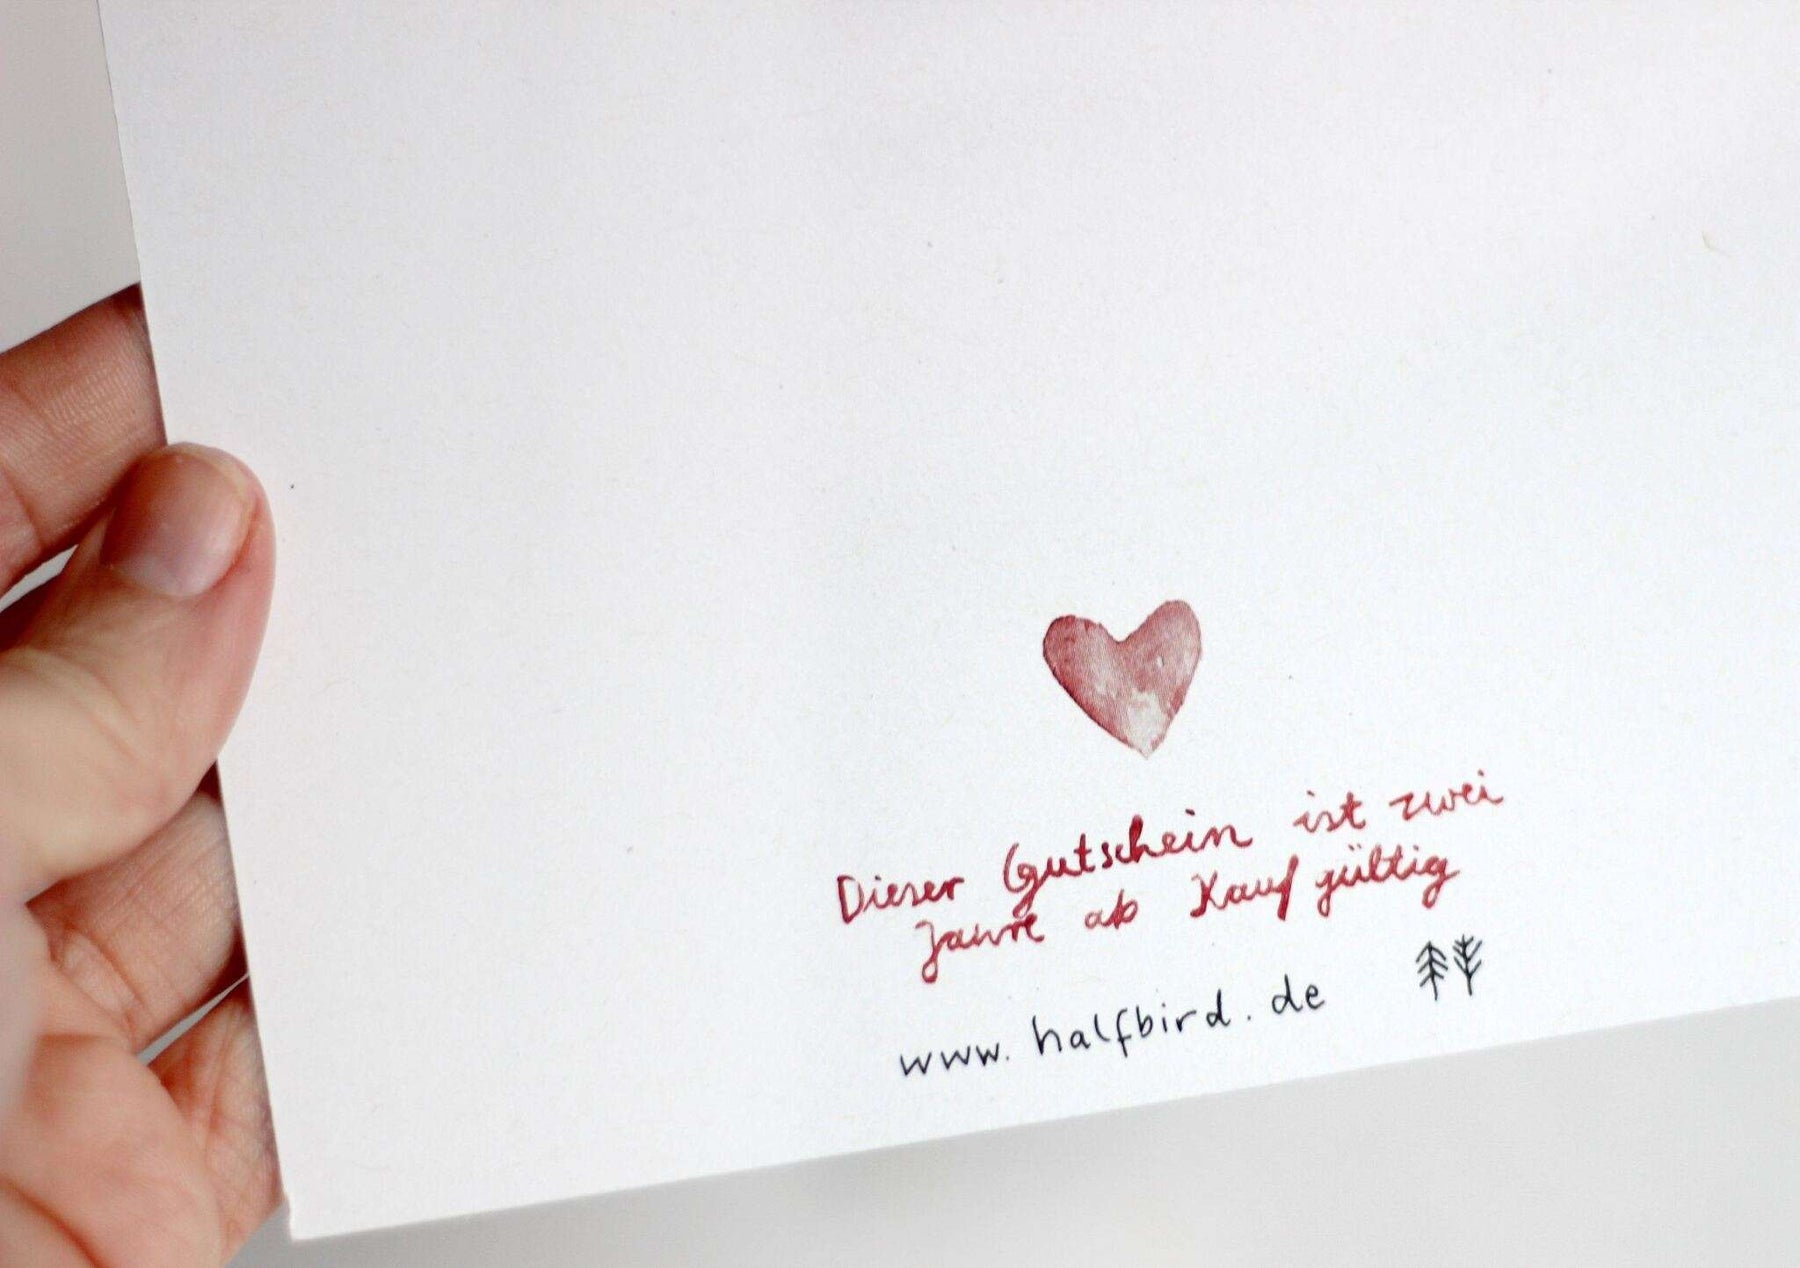 Dieser Gutschein ist zwei
Jahre ab Kauf gültig
www.halfbird.de